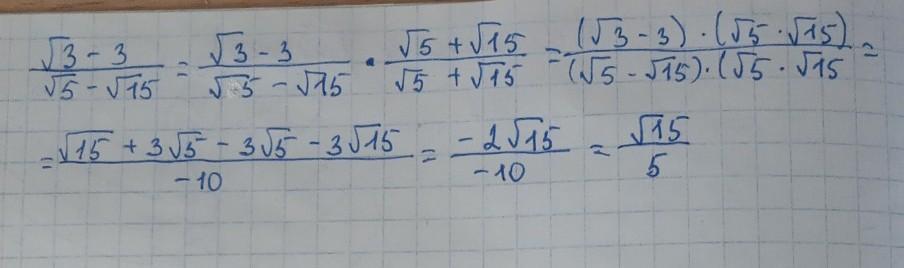 (√3 - 3)/(√5 - √15) = (√3 - 3)/(√5 - √15) · (√5 + √15)/(√5 + √15) = ((√3 - 3) · (√5 · √15))/((√5 - √15) · (√5 · √15 =
= (√15 + 3√5 - 3√5 - 3√15)/(-10) = (-2√15)/(-10) = √15/5